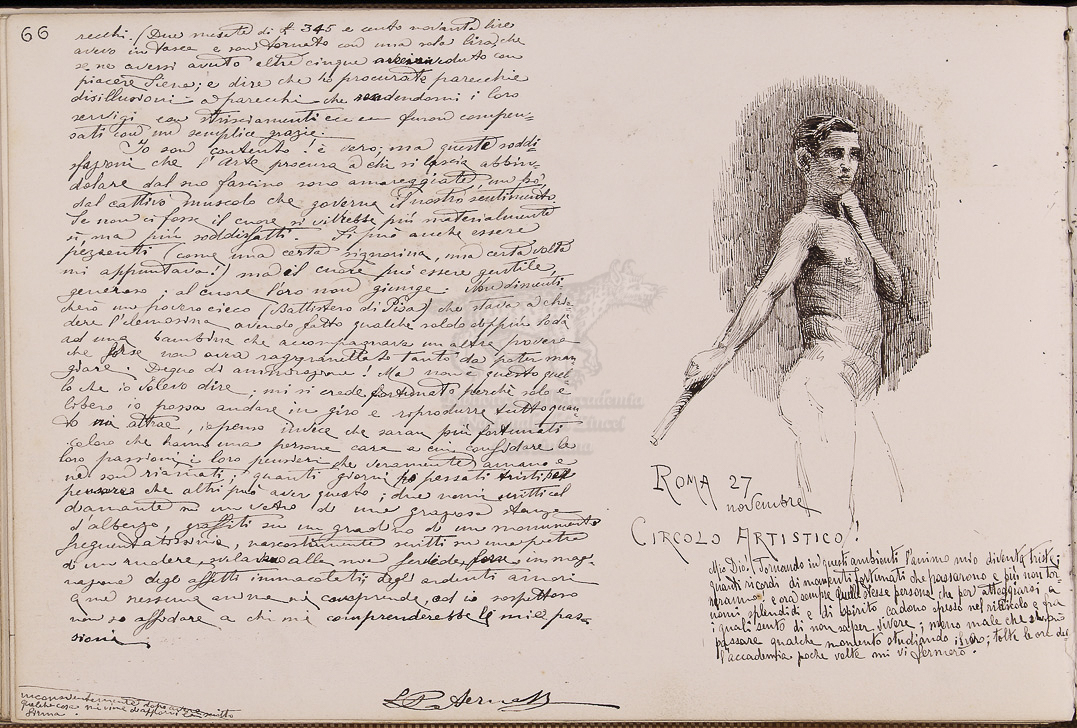 66
recchi. (Due nuvete di £ 345 e cento novanta lire
avevo in tasca e son tornato con una sola lira, che
se ne avessi avuto altre cinque veduto con
piacere Siena; e dire che ho procurate parecchie
disillusioni a parecchi che rendendomi i loro
servigi con strisciamenti ecc furon compen-
sati con un semplice grazie.
Io son contento! è vero; ma queste soddi-
sfazioni che l'Arte procura a chi si lascia abbin-
dolare dal suo fascino sono amareggiate, un po'
dal cattivo muscolo che governa il nostro sentimento.
Se non ci fosse il cuore si vivrebbe più materialmente
sì, ma più soddisfatti. Si può anche essere
pezzenti (come una certa signorina, una certa volta
mi appuntava!) ma il cuore può essere gentile,
generoso; al cuore l'oro non giunge. Non dimenti-
cherò un povero cieco (Battistero di Pisa) che stava a chie-
dere l'elemosina avendo fatto qualche soldo
ad una bambina che accompagnava un altre povere
che forse non avea raggranellato tanto da poter man
giare. Degno di ammirazione! Ma non è questo quel
lo che io volevo dire; mi si crede fortunato perchè solo e
libero io posso andare in giro e riprodurre tutto quan
to mi attrae, io penso invece che saran più fortunati
coloro che hanno una persona cara a cui confidare le
loro passioni, i loro pensieri che veramente amano e
ne son riamati; quanti giorni ho passati tristi
che altri può aver questo; due nomi scritti col
diamante su un vetro di una graziosa stanza
d'albergo, graffiti su un gradino di un monumento
frequentatissimo, nascostamente scritti su una pietra
di un rudere, alla mia fervida forse immagi-
nazione degli affetti immacolati; degli ardenti amori
a me nessuna anima mi comprende, ed io sospettoso
non so affidare a chi mi comprenderebbe le mie pas-
sioni.
inconsciamente dopo avere
qualche cosa mi vien di apporvi la
firma.
ROMA 27
novembre
CIRCOLO ARTISTICO!
Mio Dio! Tornando in questi ambienti l'animo mio diventa triste;
quanti ricordi di momenti fortunati che passarono e più non tor-
neranno e ora sempre quelle stesse persone che per atteggiarsi a
uomi splendidi e di spirito cadono spesso nel ridicolo e fra
i quali sento di non saper vivere; meno male che si può
passare qualche momento studiando il vero; tolte le ore del
l'accademia poche volte mi vi fermerò.